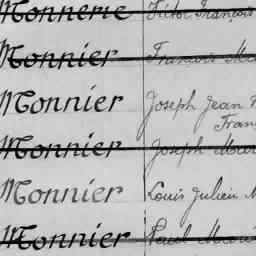 Monnerie Victor François
Monnier François Mar
Monnier Joseph Jean
Fran
Monnier Joseph Mar
Monnier Louis Julien M
Monnier Paul Mari